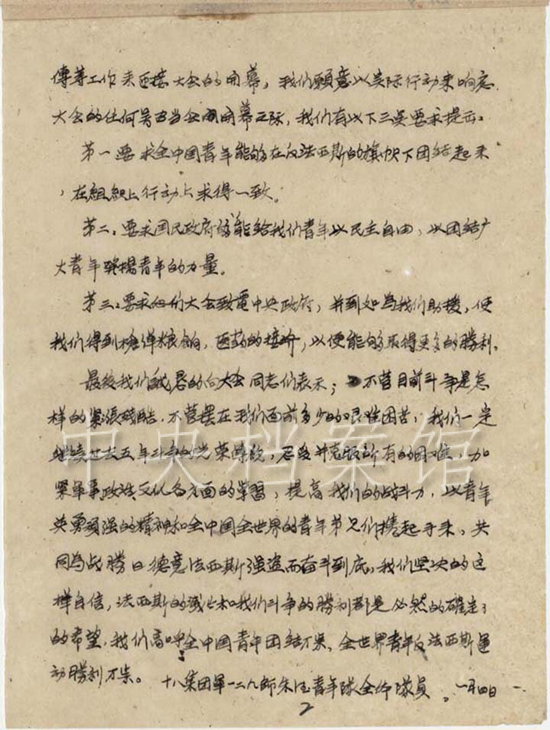 傳等工作来迎接大会的闭幕，我们願意以实际行动来响应
大会的任何号召当会闭幕之际，我们有以下三点要求提出：
第一要求全中国青年能够在反法西斯的旗帜下团结起来
，在組織上行动上求得一致。
第二，要求国民政府能給我们青年以民主自由，以团结广
大青年發揚青年的力量。
第三：要求你们大会致電中央政府，并到如為我们助援，使
我们得到槍弹粮餉，医药的接济，以便能够取得更多的勝利。
最後我们的向大会同志们表示；不管目前斗争是怎
样的緊張残酷，不管摆在我们面前多少的艰难困苦，我们一定
继续过去五年斗争的光荣傳統，忍受并克服所有的困难，加
緊軍事政治文化各方面的学習，提高我们的战斗力，以青年
英勇頑强的精神和全中国全世界的青年弟兄们携起手来，共
同為战勝日德意法西斯强盗而奋斗到底，我们坚决的这
样自信，法西斯的滅亡和我们斗争的勝利都是必然的確定了
的希望，我们高呼全中国青年团结万岁。全世界青年反法西斯運
动勝利万岁。十八集团軍一二九師朱德青年隊全体隊員 一月四日
2
中央档案馆